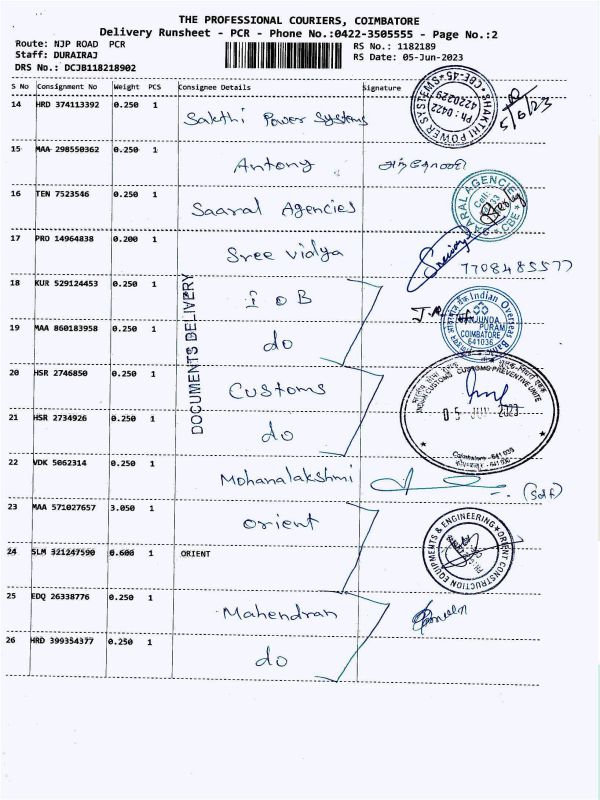 THE PROFESSIONAL COURIERS, COIMBATORE
Delivery Runsheet - PCR - Phone No.:0422-3505555 - Page No.:2
Route: NJP ROAD PCR
RS No.: 1182189
Staff: DURAIRAJ
RS Date: 05-Jun-2023
DRS No.: DCJB118218902
S No Consignment No Weight PCS Consignee Details Signature
14 HRD 374113392 0.250 1 Sakthi Power Systems
SHAKTHI POWER SYSTEMS CBE-45
Ph : 0422
4220229
5/6/23
15 MAA 298550362 0.250 1 Antony அந்தோணி
16 TEN 7523546 0.250 1 Saaral Agencies
SAARAL AGENCIES CBE
Cell:
17 PRO 14964838 0.200 1 Sree vidya
7708485577
DOCUMENTS DELIVERY
18 KUR 529124453 0.250 1 I O B
Indian Overseas Bank
PURAM
COIMBATORE
641036
19 MAA 860183958 0.250 1 do
20 HSR 2746850 0.250 1 Customs
INDIAN CUSTOMS CUSTOMS PREVENTIVE UNIT
05 JUN 2023
Coimbatore - 641 035
21 HSR 2734926 0.250 1 do
22 VDK 5062314 0.250 1 Mohanalakshmi
(Self)
23 MAA 571027657 3.050 1 Orient
ORIENT CONSTRUCTION EQUIPMENTS & ENGINEERING
24 SLM 321247590 0.600 1 ORIENT
25 EDQ 26338776 0.250 1 Mahendran
26 HRD 399354377 0.250 1 do